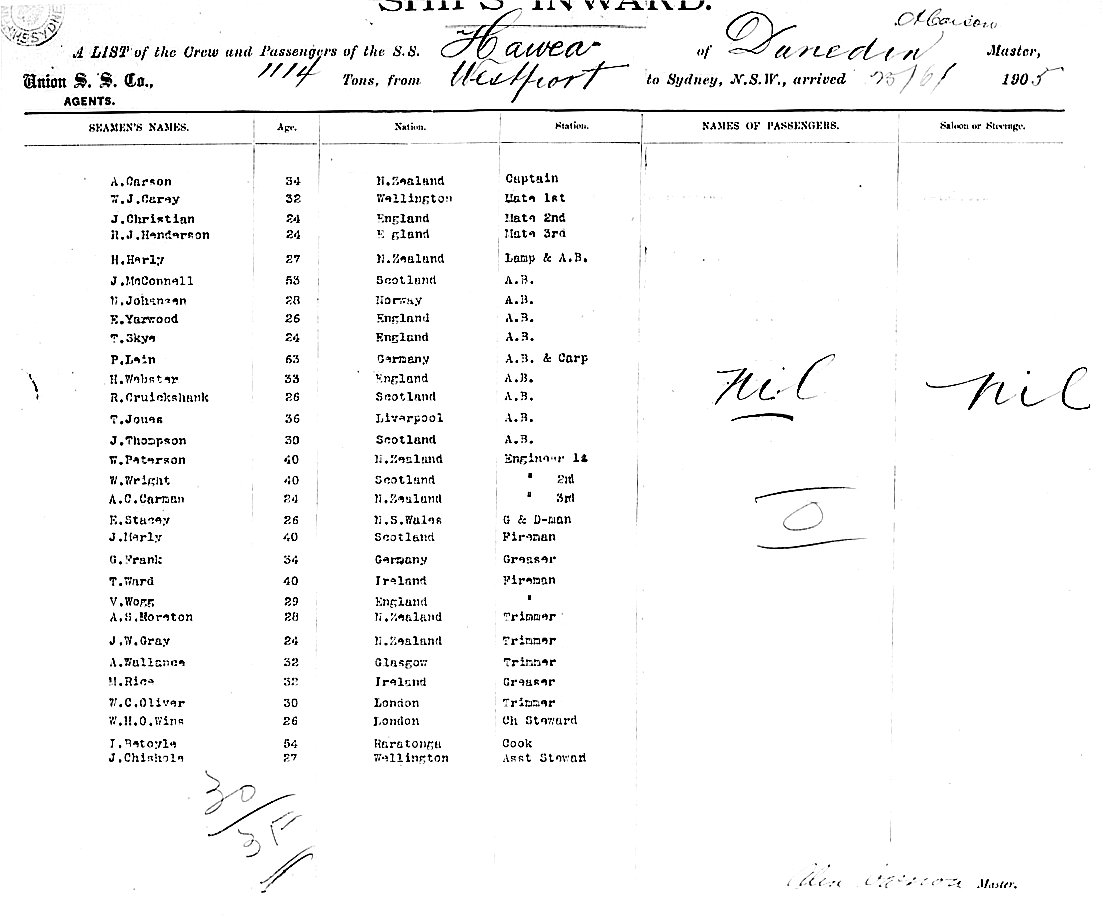 SHIPS INWARD.
A LIST of the Crew and Passengers of the S.S. Hawea of Dunedin A Carson Master,
Union S. S. Co., 1114 Tons, from Westport to Sydney, N.S.W., arrived 23/6/ 1905
AGENTS.
SEAMEN'S NAMES. Age. Nation. Station. NAMES OF PASSENGERS. Saloon or Steerage.
A.Carson 34 N.Zealand Captain
W.J.Carey 32 Wellington Mate 1st
J.Christian 24 England Mate 2nd
R.J.Henderson 24 E gland Mate 3rd
H.Harly 27 N.Zealand Lamp & A.B.
J.McConnell 53 Scotland A.B.
N.Johansen 28 Norway A.B.
E.Yarwood 26 England A.B.
T.Skye 24 England A.B.
P.Lein 63 Germany A.B. & Carp
H.Webster 33 England A.B. Nil Nil
R.Cruickshank 26 Scotland A.B.
T.Jones 36 Liverpool A.B.
J.Thompson 30 Scotland A.B.
W.Peterson 40 N.Zealand Engineer 1t
W.Wright 40 Scotland " 2nd
A.C.Carman 24 N.Zealand " 3rd
E.Stacey 26 N.S.Wales G & D-man O
J.Merly 40 Scotland Fireman
G.Frank 34 Germany Greaser
T.Ward 40 Ireland Fireman
V.Wogg 29 England "
A.S.Moreton 28 N.Zealand Trimmer
J.W.Gray 24 N.Zealand Trimmer
A.Wallance 32 Glasgow Trimmer
M.Rice 32 Ireland Greaser
W.C.Oliver 30 London Trimmer
W.H.O.Wins 26 London Ch Steward
I.Batoyle 54 Raratonga Cook
J.Chishole 27 Wellington Asst Steward
30
Allen Carson Master.